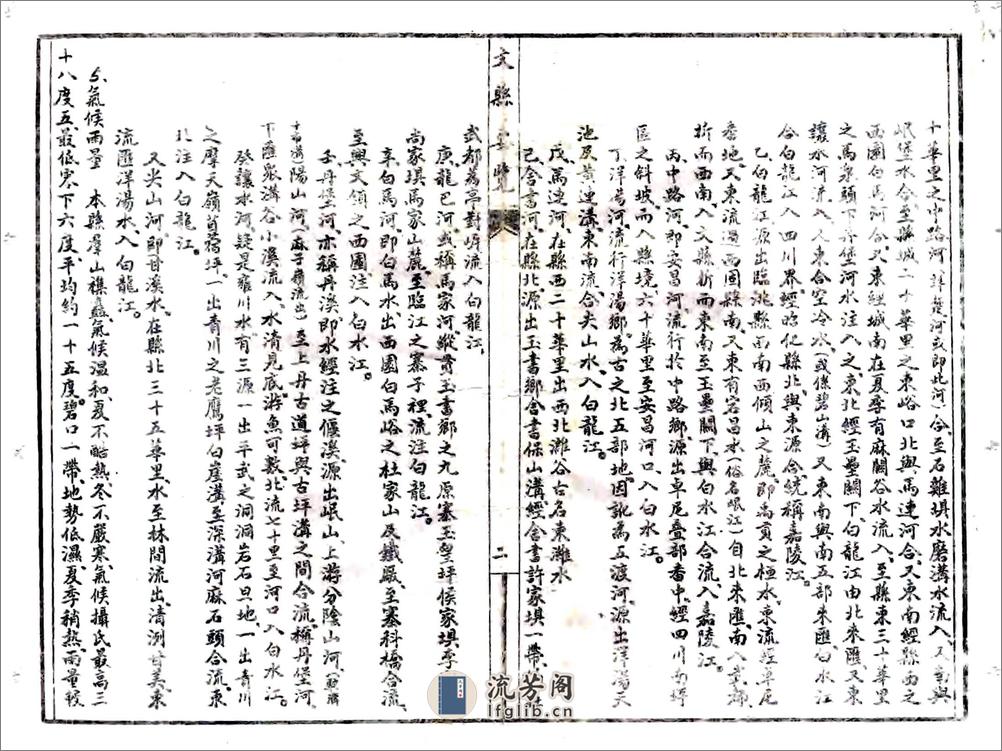 十華里之中路河(詳詹河或即此河)合至石雞垻水磨溝水流入、又南與
岷堡水合至縣城二十華里之東峪口北與馬連河合、又東南經縣西之
西園白馬河合、又東經城南在夏季有麻關谷水流入、至縣東三十華里
之馬泉頭下丹堡河水注入之、東北經玉壘關下、白龍江由北來匯、又東
讓水河流入、又東合空冷水(或係碧山溝)又東南與南五部朱匯白水江
合白龍江入四川界、經昭化縣北、與東源合統稱嘉陵江。
乙白龍江源出臨洮縣西南西傾山之麓、即禹貢之桓水東流經卓尼
番地、又東流過西固縣南、又東有宕昌水(俗名岷江)自北來匯、南入武都
折而西南入文縣、折而東南至玉壘關下與白水江合流、入嘉陵江。
丙中路河、即安昌河、流行於中路鄉、源出卓尼疊部番中、經四川南坪
區之斜坡而入縣境六十華里至安昌河口、入白水江。
丁洋湯河、流行洋湯鄉、為古之北五部地、因訛為五渡河、源出洋湯天
池及黄連溝東南流合尖山水、入白龍江。
戊馬連河、在縣西二十華里出西北濰谷古名東濰水
己舍書河、在縣北源出玉書鄉舍書保山溝經舍書許家垻一帶、
武都蒿亭對垿流入白龍江、
庚龍巴河、或稱馬家河、縱貫玉書鄉之九原寨玉壘坪候家垻季
尚家垻馬家山麓至臨江之寨子裡、流注白龍江。
辛白馬河、即白馬水、出西園白馬峪之杜家山及鐵嚴、至寨科橋合流
至興文領之西園注入白水江。
壬丹堡河、亦稱丹溪、即水經注之偃溪源出岷山上游分陰山河、
陽山河(麻子嶺流出)至上丹古道坪與古坪溝之間合流、稱丹堡河
下匯衆溝谷小溪流入、水清見底、游魚可數、北流七十里至河口入白水江。
癸讓水河、疑是羅川水、有三源一出平武之洞洞岩石旦地、一出青川
之摩天嶺苜蓿坪、一出青川之老鹰坪白崖溝至深溝河麻石頭合流、東
北注入白龍江。
又尖山河即甘溪水、在縣北三十五華里、水至林間流出、清洌甘美東
流匯洋湯水入白龍江。
5、氣候雨量　本縣羣山樸矗氣候温和、夏不酷熱、冬不嚴寒、氣候攝氏最高三
十八度五、最低零下六度、平均約一十五度、碧口一帶、地勢低濕、夏季稍熱、雨量較
文縣要覽
二
流芳阁
lfglib.cn